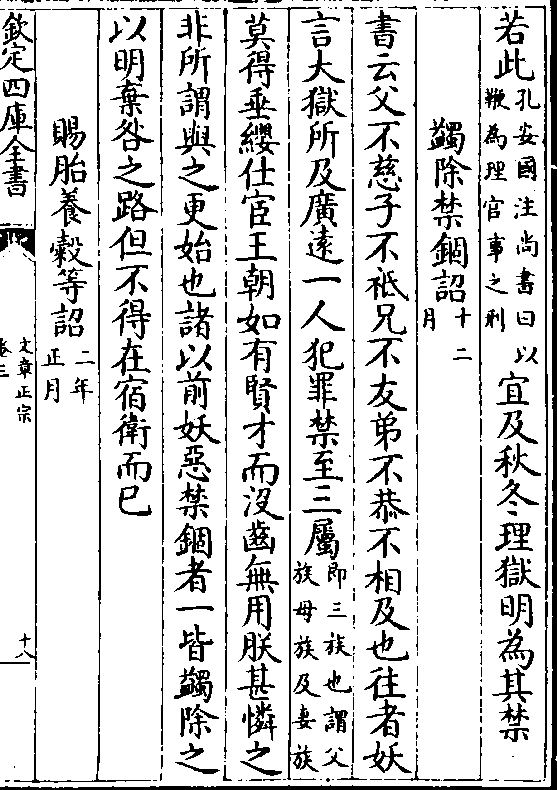 若此孔安國注尚書曰以鞭為理官事之刑宜及秋冬理獄明為其禁
蠲除禁錮詔十二月
書云父不慈子不祗兄不友弟不恭不相及也往者妖
言大獄所及廣遠一人犯罪禁至三屬即三族也謂父族母族及妻族
莫得垂纓仕宦王朝如有賢才而沒齒無用朕甚憐之
非所謂與之更始也諸以前妖惡禁錮者一皆蠲除之
以明棄咎之路但不得在宿衛而已
賜胎養穀等詔二年正月
欽定四庫全書
文章正宗
卷三
十八